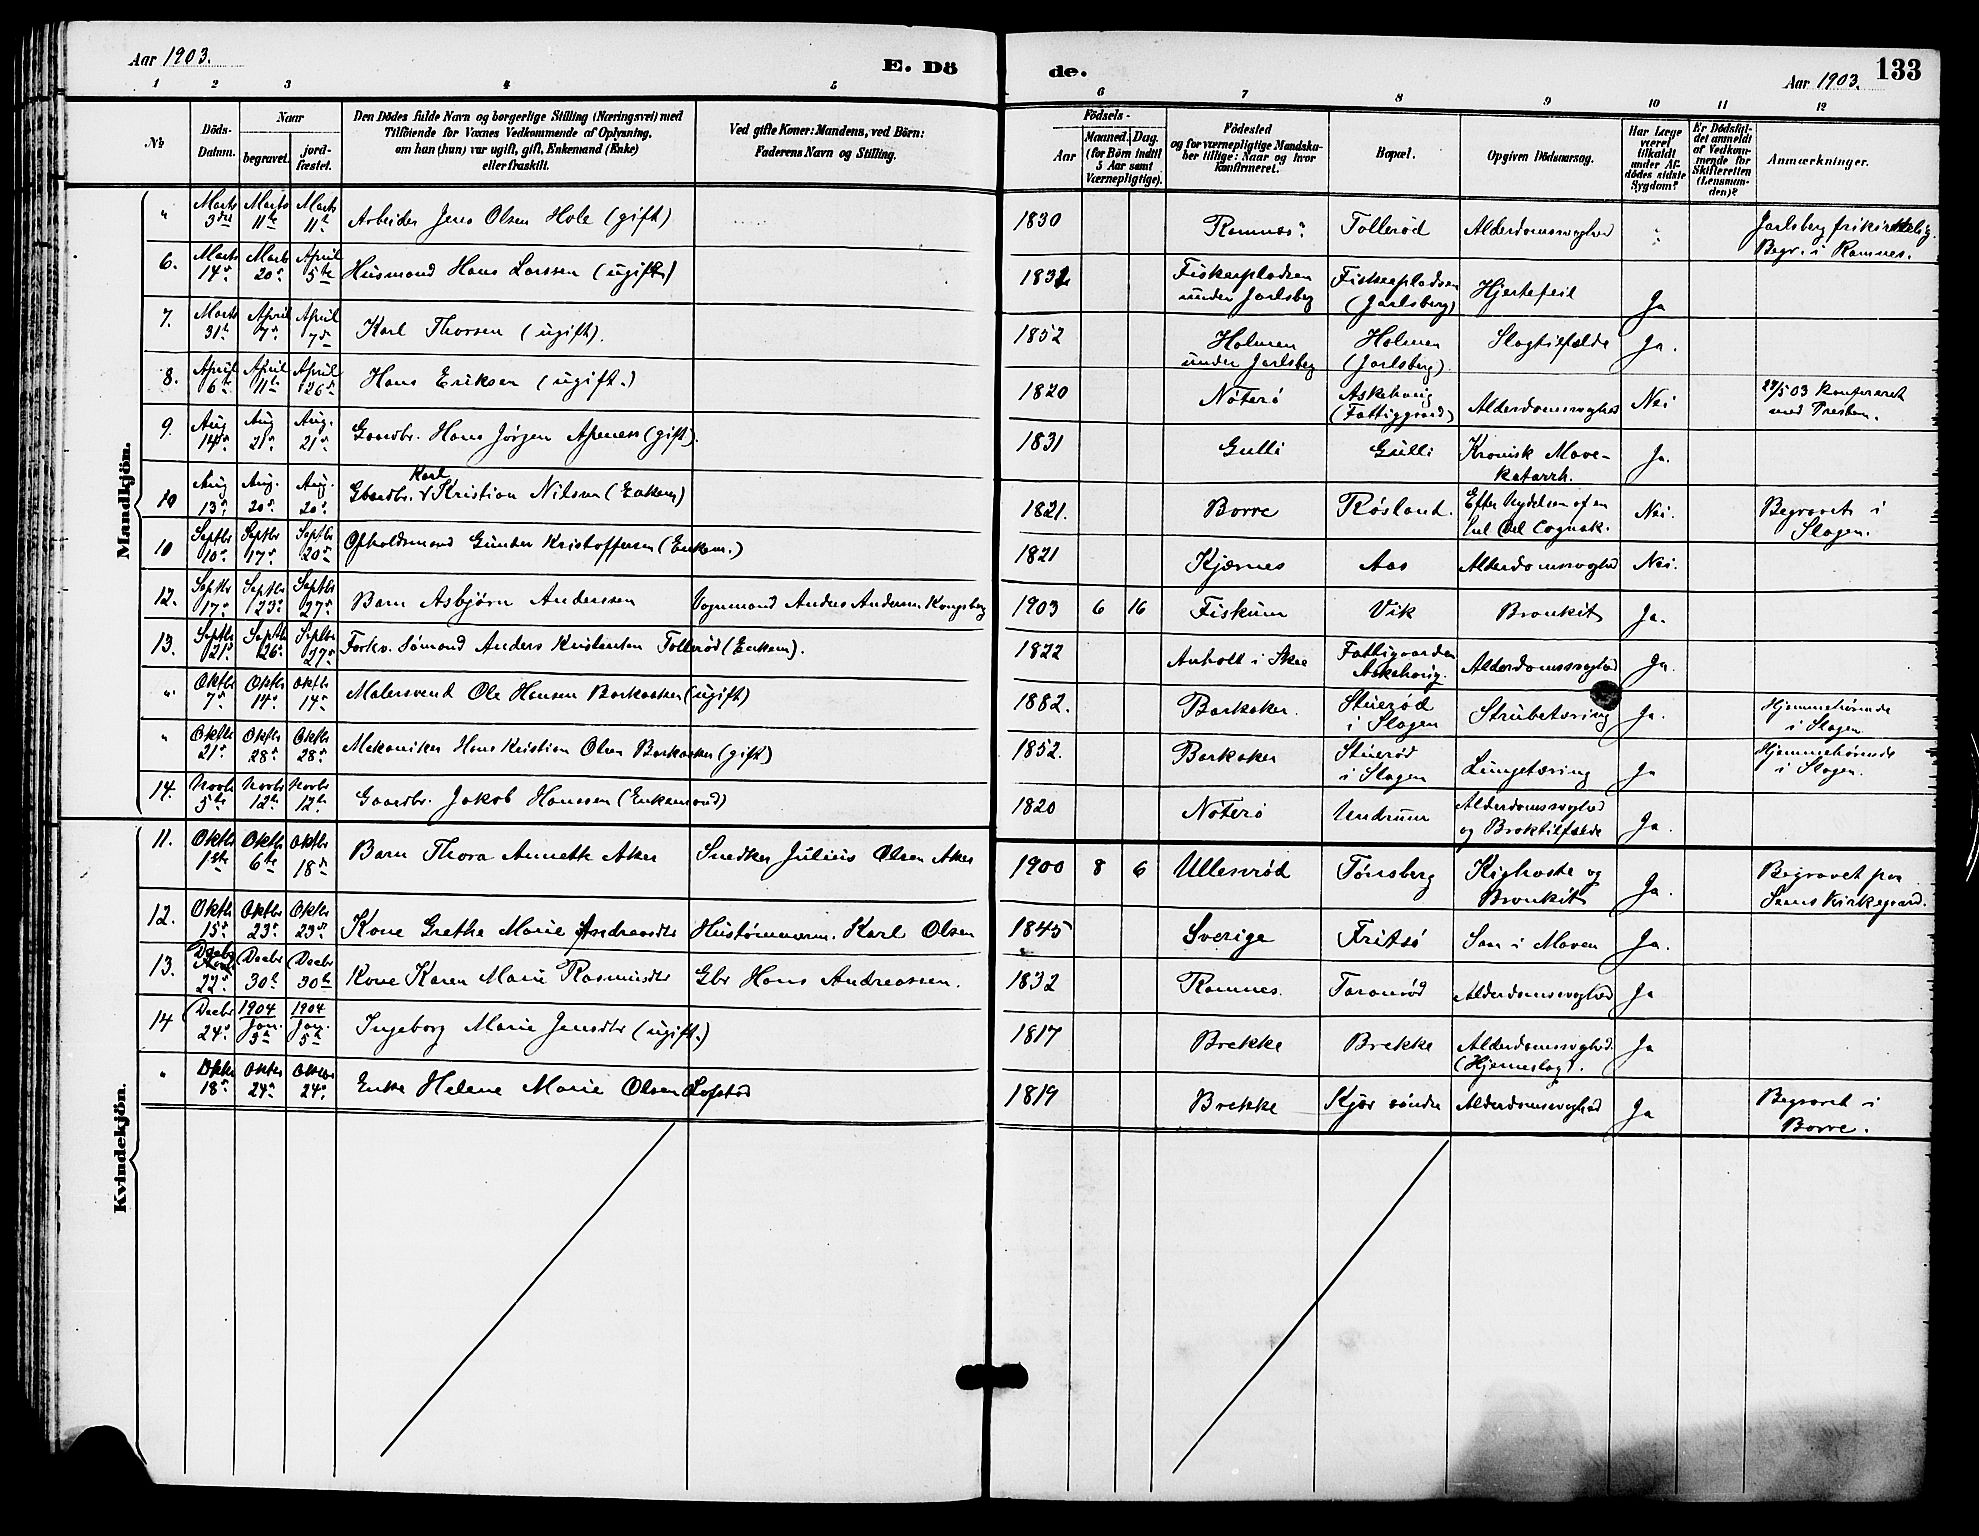 Aar 1903.
E. Dö
de.
Aar 1903.
133
1 2 3 4 5
6 7 8 9 10 11 12
№
Döds-
Datum.
Naar
begravet.
jord-
fæstet.
Den Dödes fulde Navn og borgerlige Stilling (Næringsvei) med
Tilföiende for Voxnes Vedkommende af Oplysning,
om han (hun) var ugift, gift, Enkemand (Enke)
eller fraskilt.
Ved gifte Koner: Mandens, ved Börn:
Faderens Navn og Stilling.
Födsels-
Aar
Maaned. Dag.
(for Börn indtil
5 Aar samt
Værnepligtige).
Födested
og for værnepligtige Mandska-
ber tillige: Naar og hvor
konfirmeret.
Bopæl.
Opgiven Dödsaarsag.
Har Læge
været
tilkaldt
under Af-
dödes sidste
Sygdom?
Er Dödsfal-
det anmeldt
af Vedkom-
mende for
Skifteretten
(Lensman-
den)?
Anmærkninger.
Mandkjön.
" Marts 3die Marts 11te Marts 11te Arbeider Jens Olsen Hole (gift) 1830 Ramnes Tollerød Alderdomssvaghed " Jarlsberg frikirkelig.
Begr. i Ramnes.
6. Marts 14de Marts 20de April 5te Husmand Hans Larssen (ugift) 1832 Fiskerpladsen
under Jarlsberg Fiskerpladsen
(Jarlsberg) Hjertefeil Ja
7. Marts 31te April 7de April 7de Karl Thorsen (ugift). 1852 Holmen
under Jarlsberg Holmen
(Jarlsberg). Slagtilfælde Ja.
8. April 6te April 11te April 26de Hans Eriksen (ugift.) 1820 Nøterø Askehaug
(Fattiggaard) Alderdomssvaghed Nei 27/5 03 konfereret
med Presten.
9. Aug 14de Aug 21de Aug. 21de Gaardbr. Hans Jørgen Apenes (gift). 1831 Gulli Gulli Kronisk Mave-
katarrh. Ja.
10 Aug 13de Aug. 20de Aug. 20de Gaardbr. Karl Kristian Nilsen (Enkem) 1821. Borre Røsland. Efter Nydelsen af en
hel Del Cognak. Nei. Begravet i
Slagen.
10 Septbr 10de Septbr 17de Septbr 20de Opholdsmand Günder Kristoffersen (Enkem.) 1821 Kjærnes Aas Alderdomssvaghed Nei.
12. Septbr 17de Septbr 23de Septbr 27de Barn Asbjørn Anderssen Vognmand Anders Andersen Kongsberg 1903 6 16 Fiskum Vik Bronkit Ja.
13. Septbr 21de Septbr 26de Septbr 27de Forhv. Sømand Anders Kristensen Tollerød (Enkem). 1822 Anholt i Skee Fattiggaarden
Askehaug. Alderdomssvaghed Ja.
" Oktbr 7de Oktbr 14de Oktbr 14de Malersvend Ole Hansen Barkaaker (ugift) 1882. Barkaker. Stuerød
i Slagen Strubetæring Ja. Hjemmehørende
i Slagen
" Oktbr 21de Oktbr 28de Oktbr 28de Mekaniker Hans Kristian Olsen Barkaaker (gift) 1852. Barkaker Stuerød
i Slagen Lungetæring Ja Hjemmehørende
i Slagen.
14. Novbr 5te Novbr 12te Novbr 12te Gaardbr. Jakob Hanssen (Enkemand) 1820 Nøterø Undrum Alderdomssvaghed
og Broktilfælde Ja.
Kvindekjön.
11. Oktbr 1ste Oktbr 6te Oktbr 18de Barn Thora Annette Aker Snedker Julius Olsen Aker 1900 8 6 Ullesrød Tønsberg Kighoste og
Bronkit Ja. Begravet paa
Sems Kirkegaard.
12. Oktbr 15de Oktbr 23de Oktbr 23de Kone Grethe Marie Andreasdtr Hustømmerm. Karl Olsen 1845 Sverige Fritsø Saar i Maven Ja.
13. Decbr 22de Decbr 30te Decbr 30te Kone Karen Marie Rasmusdtr Gbr Hans Andreassen. 1832 Ramnes. Taranrød Alderdomssvaghed Ja
14 Decbr 24de 1904 Jan. 5te 1904 Jan. 5te Ingeborg Marie Jensdtr (ugift.) 1817 Brekke Brekke Alderdomssvaghed.
(Hjerneslag). Ja
" Oktbr 18de Oktbr 24de Oktbr 24de Enke Helene Marie Olsen Lofstad 1819 Brekke Kjær søndre Alderdomssvaghed Ja Begravet i
Borre.